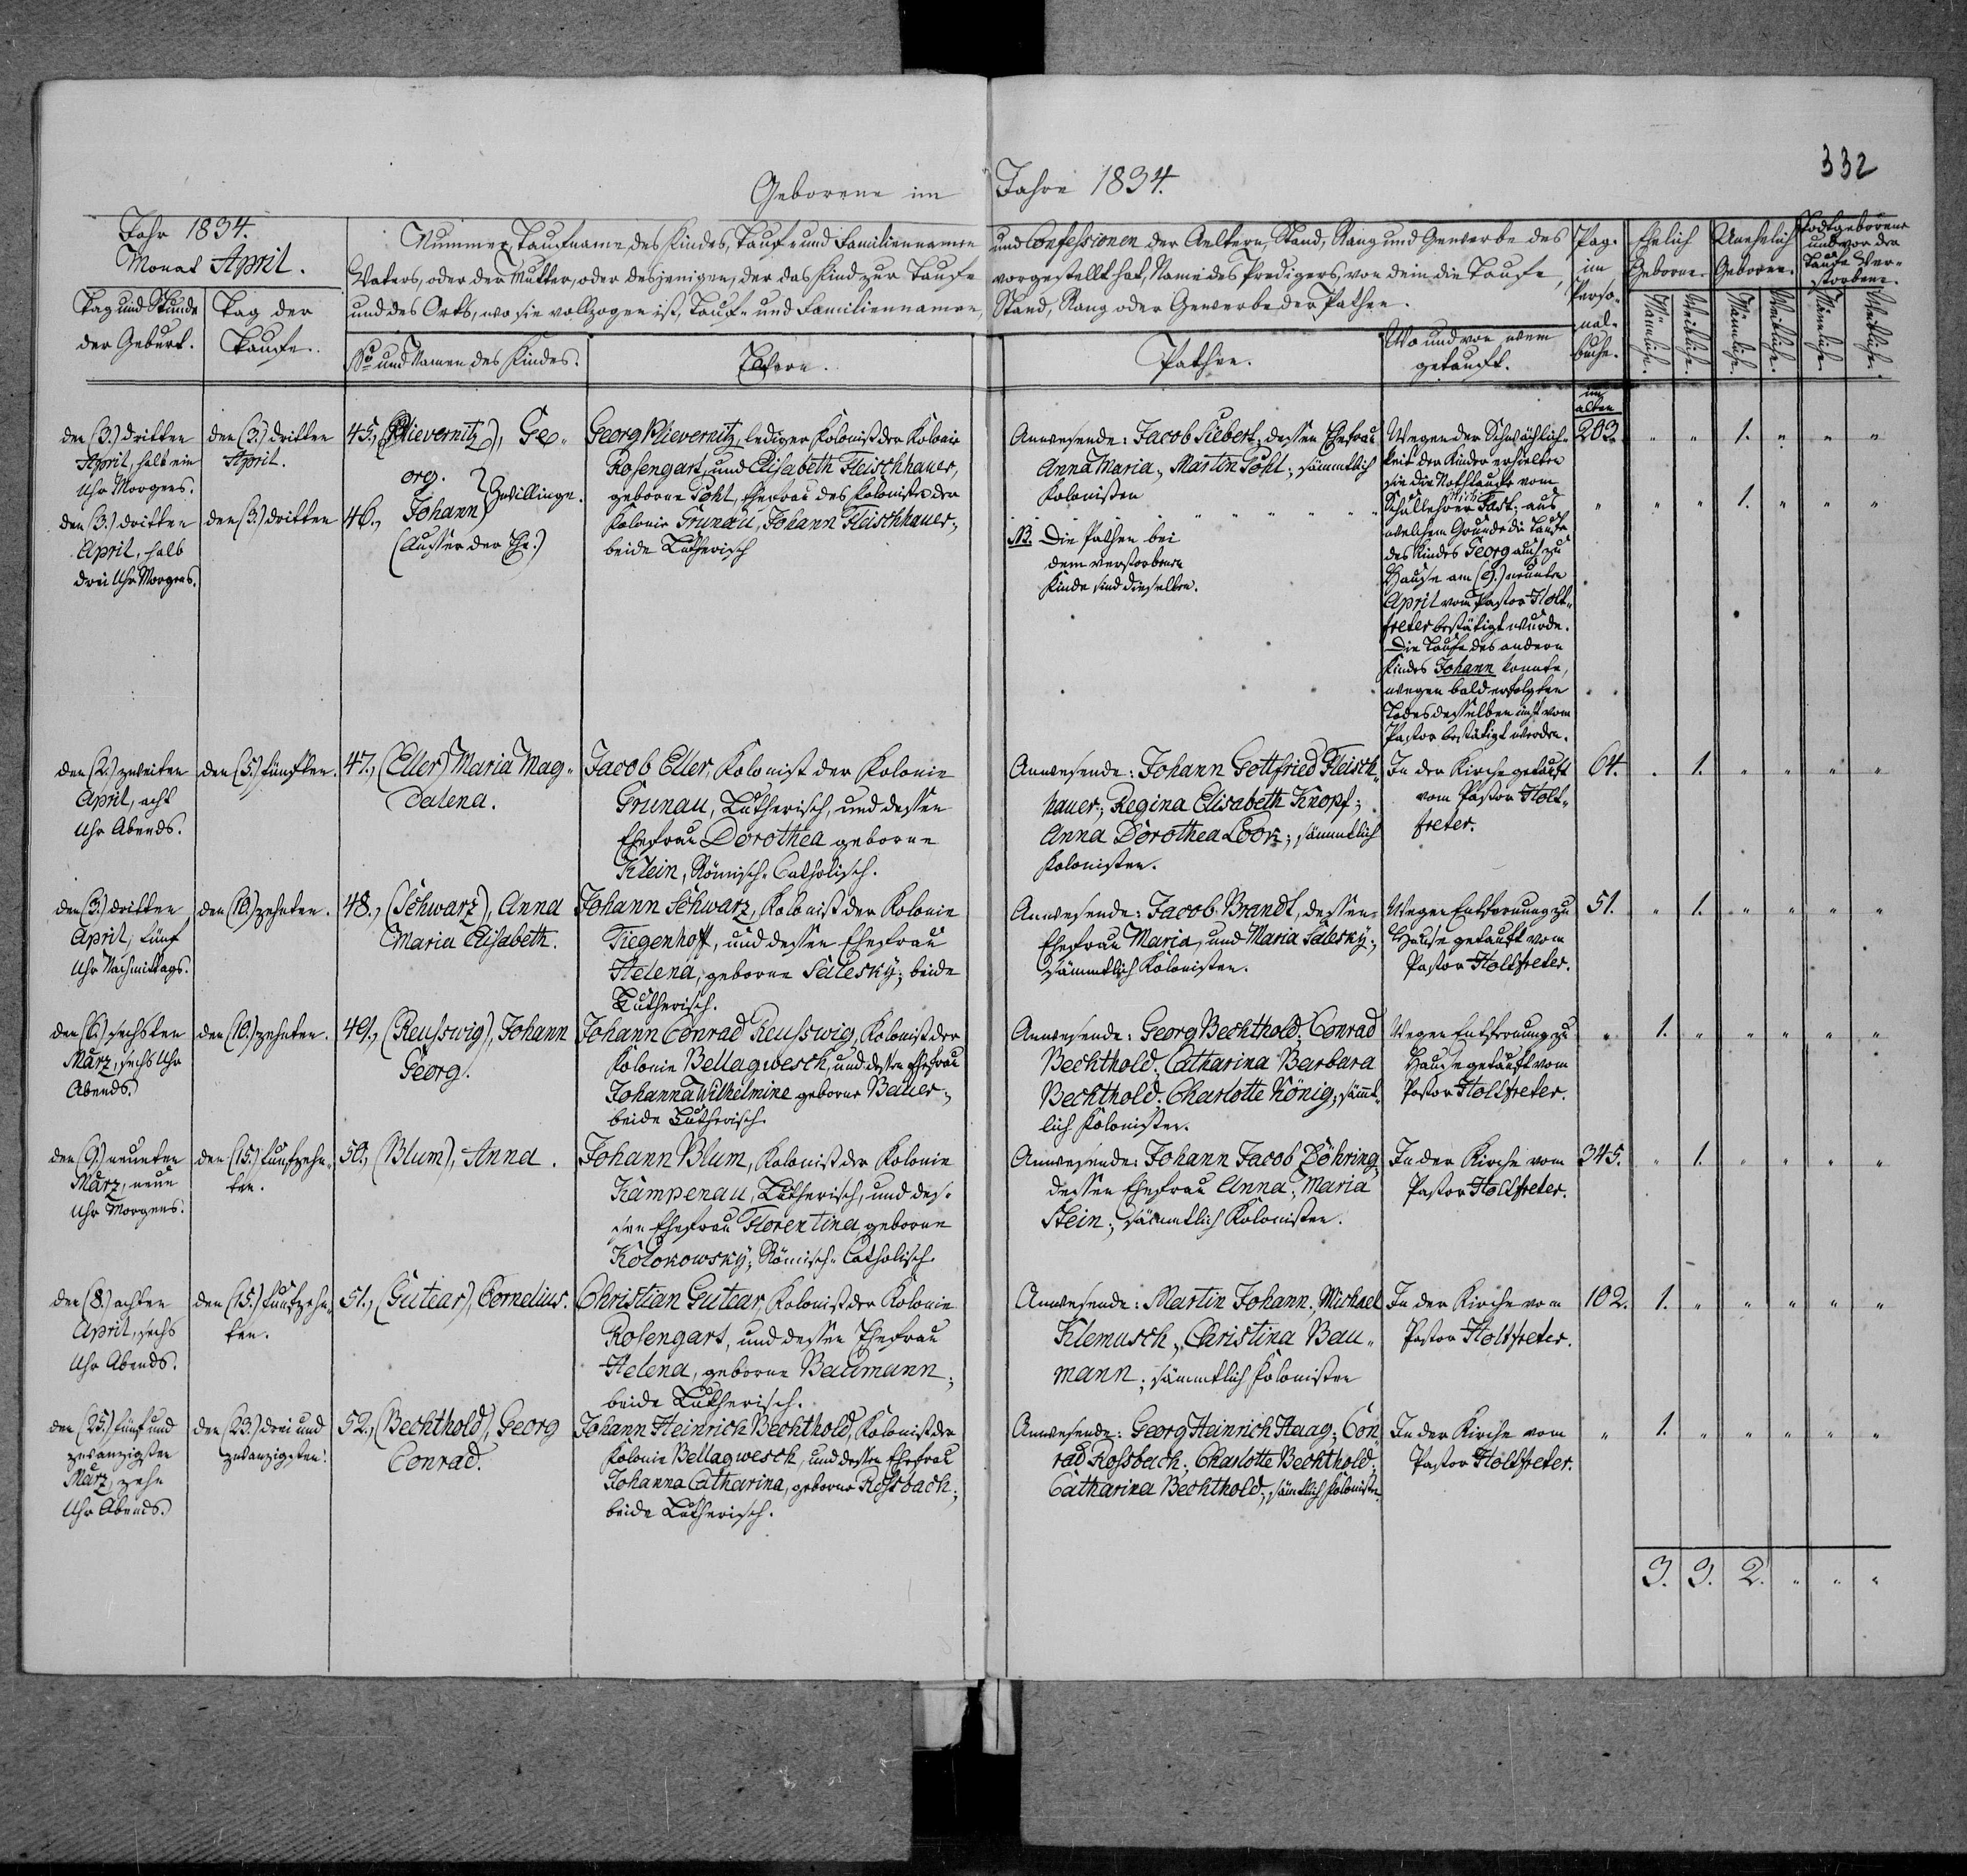 332
Geborene im Jahre 1834.
Jahr 1834.
Monat April.
Tag und Stunde
der Geburt.
Tag der
Taufe.
Nummer, Taufname, des Kindes, Tauf- und Familiennamen und Confessionen der Aeltern, Stand, Rang und Gewerbe des
Vaters, oder der Mutter, oder desjenigen, der das Kind zur Taufe vorgestellt hat, Name des Predigers, von dem die Taufe,
und des Orts, wo sie vollzogen ist, Tauf- und Familiennamen, Stand, Rang oder Gewerbe der Pathen.
No und Namen des Kindes.
Aeltern.
Pathen.
Wo und von wem
getauft.
Pag.
im
Perso-
nal-
buche.
Ehelich
Geborne.
Unehelich
Geborene.
Todtgeborene
und vor der
Taufe Ver-
storbene.
Männliche.
Weibliche.
Männliche.
Weibliche.
Männliche.
Weibliche.
den (3.) dritten
April, halb ein
Uhr Morgens.
den (3.) dritten
April.
45., (Plievernitz), Ge-
org.
Zwillinge.
den (3.) dritten
April, halb
drei Uhr Morgens.
den (3.) dritten
46., Johann
(Ausser der Ehe.)
Georg Plievernitz, lediger Kolonist der Kolonie
Rosengart, und Elisabeth Fleischhauer,
geborne Pohl, Ehefrau des Kolonisten der
Kolonie Grunau, Johann Fleischhauer;
beide Lutherisch
Anwesende: Jacob Siebert; dessen Ehefrau
Anna Maria; Martin Pohl; sämmtlich
Kolonisten
NB. Die Pathen bei
dem verstorbenen
Kinde sind dieselben.
Wegen der Schwächlich-
keit der Kinder erhielten
sie die Nothtaufe vom
Schullehrer Fast; aus
welchem Grunde die Taufe
des Kindes Georg auch zu
Hause am (9.) neunten
April vom Pastor Holt-
freter bestätigt wurde.
Die Taufe des andern
Kindes Johann konnte,
wegen bald erfolgten
Todes desselben nicht vom
Pastor bestätigt werden.
im
alten
203. " " 1. " " "
" " " 1. " " "
den (2.) zweiten
April, acht
Uhr Abends.
den (5.) fünften.
47., (Eller) Maria Mag-
dalena.
Jacob Eller, Kolonist der Kolonie
Grunau, Lutherisch, und dessen
Ehefrau Dorothea geborne
Klein, Römisch-Catholisch.
Anwesende: Johann Gottfried Fleisch-
hauer; Regina Elisabeth Knopf;
Anna Dorothea ; sämmtlich
Kolonisten.
In der Kirche getauft
vom Pastor Holt-
freter.
64. " 1. " " " "
den (3.) dritten
April, fünf
Uhr Nachmittags.
den (10.) zehnten.
48., (Schwarz), Anna
Maria Elisabeth.
Johann Schwarz, Kolonist der Kolonie
Tiegenhoff, und dessen Ehefrau
Helena, geborne Salesky; beide
Lutherisch.
Anwesende: Jacob Brandt, dessen
Ehefrau Maria, und Maria Salesky;
sämmtlich Kolonisten.
Wegen Entfernung zu
Hause getauft vom
Pastor Holtfreter.
51. " 1. " " " "
den (6.) sechsten
März, sechs Uhr
Abends.
den (10.) zehnten.
49., (Reusswig), Johann
Georg.
Johann Conrad Reusswig, Kolonist der
Kolonie Bellagwesch, und dessen Ehefrau
Johanna Wilhelmine geborne Bauer;
beide Lutherisch
Anwesende: Georg Bechthold; Conrad
Bechthold; Catharina Barbara
Bechthold; Charlotte König; sämmt-
lich Kolonisten.
Wegen Entfernung zu
Hause getauft vom
Pastor Holtfreter.
" 1. " " " " "
den (9.) neunten
März, neun
Uhr Morgens.
den (15.) fünfzehn-
ten.
50., (Blum), Anna.
Johann Blum, Kolonist der Kolonie
Kampenau, Lutherisch, und des-
sen Ehefrau Florentina geborne
Kolokowsky, Römisch-Catholisch
Anwesende: Johann Jacob Döhring,
dessen Ehefrau Anna; Maria
Stein; sämmtlich Kolonisten.
In der Kirche vom
Pastor Holtfreter.
345. " 1. " " " "
den (8.) achten
April, sechs
Uhr Abends.
den (15.) fünfzehn-
ten.
51., (Gutear), Cornelius.
Christian Gutear, Kolonist der Kolonie
Rosengart, und dessen Ehefrau
Helena, geborne Baumann;
beide Lutherisch.
Anwesende: Martin Johann; Michael
Klemusch; Christina Bau-
mann; sämmtlich Kolonisten
In der Kirche vom
Pastor Holtfreter.
102. 1. " " " " "
den (25.) fünf und
zwanzigsten
März, zehn
Uhr Abends.
den (23.) drei und
zwanzigsten.
52., (Bechthold), Georg
Conrad.
Johann Heinrich Bechthold, Kolonist der
Kolonie Bellagwesch, und dessen Ehefrau
Johanna Catharina, geborne Rossbach;
beide Lutherisch.
Anwesende: Georg Heinrich Haag; Con-
rad Rossbach; Charlotte Bechthold;
Catharina Bechthold; sämtlich Kolonisten.
In der Kirche vom
Pastor Holtfreter.
" 1. " " " " "
3. 3. 2. " " "